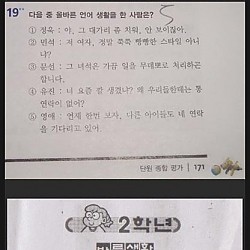 19 다음 중 올바른 언어 생활을 한 사람은? 5
① 정욱 : 아, 그 대가리 좀 치워, 안 보이잖아.
② 민석 : 저 여자, 정말 쭉쭉 빵빵한 스타일 아니
니?
③ 문선 : 그 녀석은 가끔 일을 무데뽀로 처리하곤
합니다.
④ 유진 : 너 요즘 잘 생겼냐? 왜 우리들한테는 통
연락이 없어?
⑤ 영애 : 언제 한번 보자, 다른 아이들도 네 연락
을 기다리고 있어
단원 종합 평가 171
2학년
생활